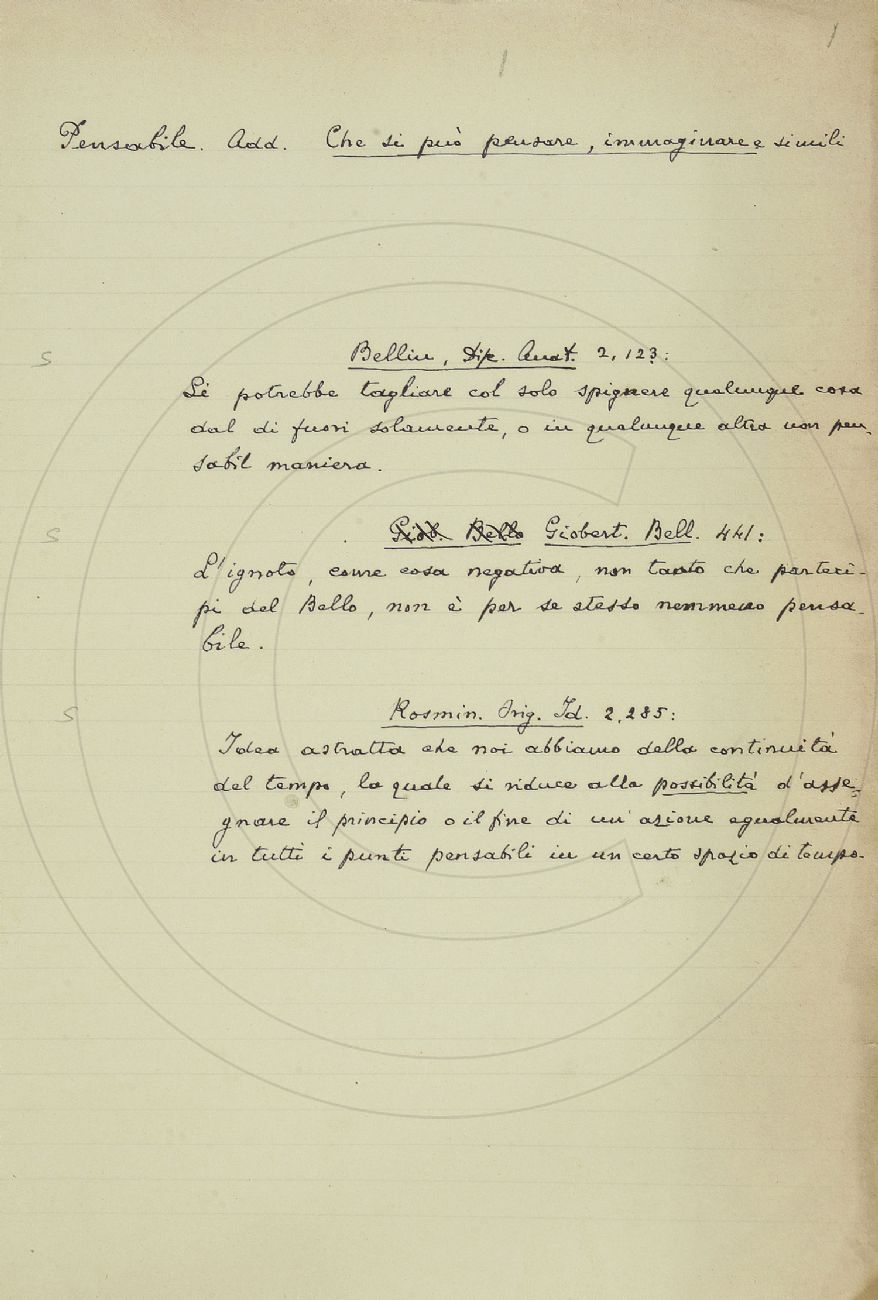 1
1
Pensabile. Add. Che si può pensare, immaginare e simili
S
Bellin, Dis. Anat. 2, 123:
Si potrebbe tagliare col solo spignere qualunque cosa
dal di fuori solamente, o in qualunque altra non pen-
sabil maniera.
S
Giob. Bello Giobert. Bell. 441:
L'ignoto, come cosa negativa, non tanto che parteci-
pi del Bello, non è per se stesso nemmeno pensa-
bile.
S
Rosmin. Orig. Id. 2, 285:
Idea astratta che noi abbiamo della continuità
del tempo, la quale si riduce alla possibilità d'asse-
gnare il principio o il fine di un'azione egualmente
in tutti i punti pensabili in un certo spazio di tempo.